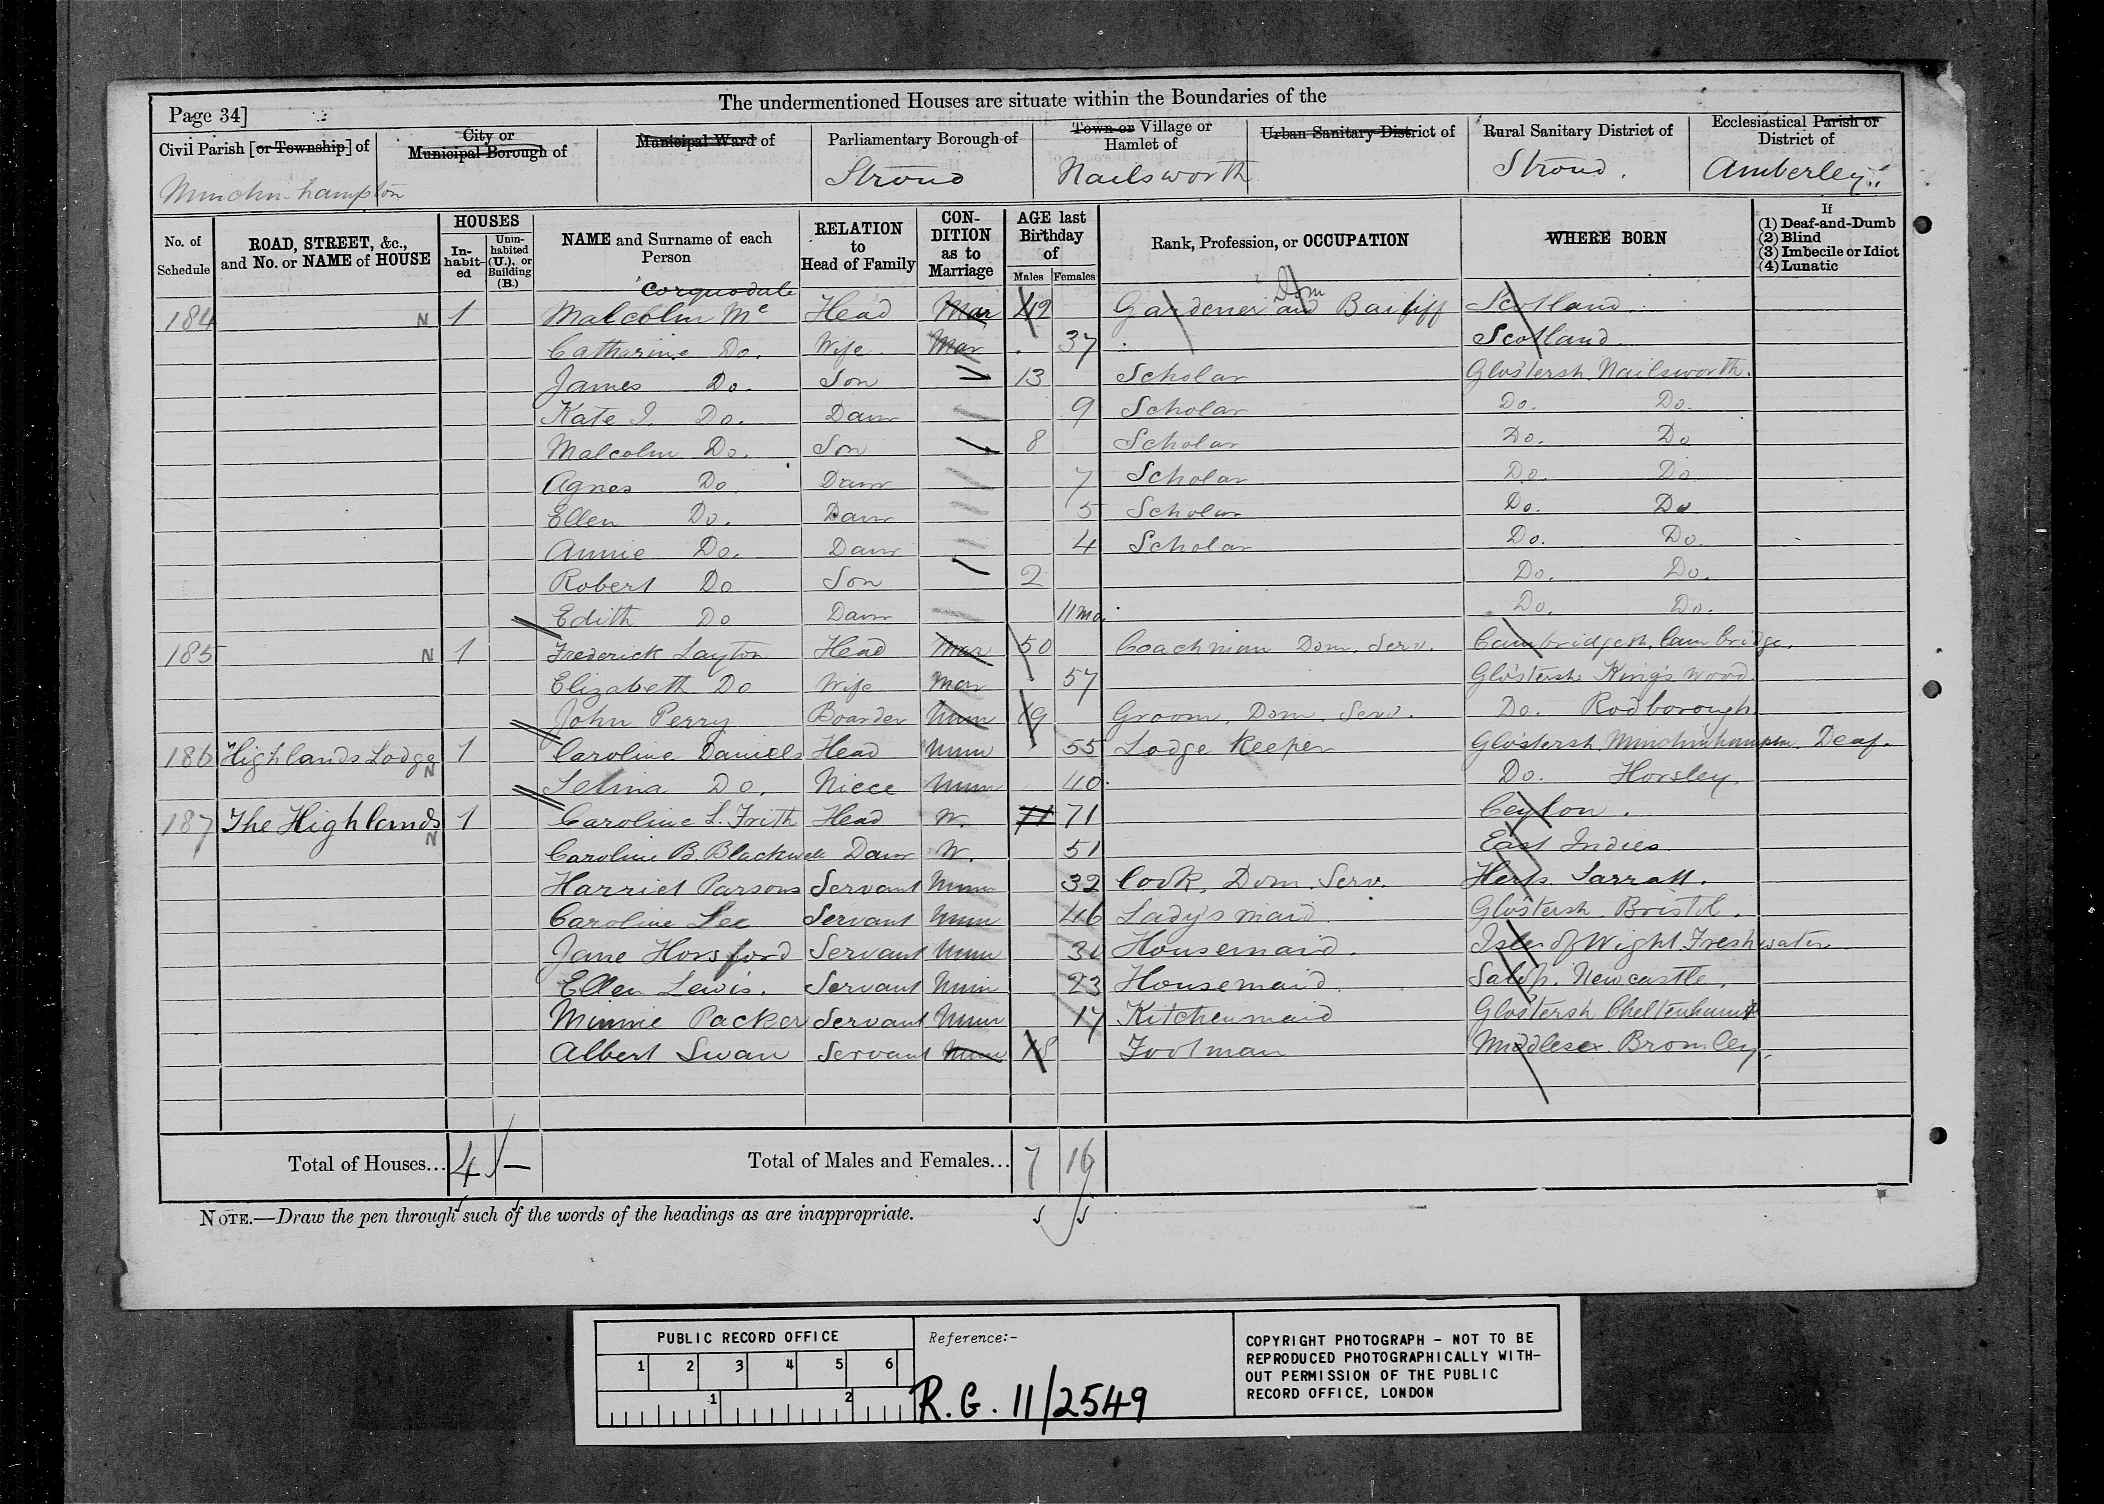 The undermentioned Houses are situate within the Boundaries of the
Page 34]
Civil Parish [or Township] of
City or Municipal Borough of
Municipal Ward of
Parliamentary Borough of
Town or Village or Hamlet of
Urban Sanitary District of
Rural Sanitary District of
Ecclesiastical Parish or District of
Minchinhampton
Stroud
Nailsworth
Stroud.
Amberley
No. of Schedule
ROAD, STREET, &c., and No. or NAME of HOUSE
HOUSES
In-habit-ed
Unin-habited (U.), or Building (B.)
NAME and Surname of each Person
RELATION to Head of Family
CON-DITION as to Marriage
AGE last Birthday of
Males Females
Rank, Profession, or OCCUPATION
WHERE BORN
If
(1) Deaf-and-Dumb
(2) Blind
(3) Imbecile or Idiot
(4) Lunatic
Corquodale Dom
184 N 1 Malcolm Mc Head Mar 42 Gardener and Bailiff Scotland
Catharine Do. Wife Mar 37 Scotland
James Do. Son 13 Scholar Glo'stersh. Nailsworth.
Kate I. Do. Daur 9 Scholar Do. Do.
Malcolm Do. Son 8 Scholar Do. Do
Agnes Do. Daur 7 Scholar Do. Do
Ellen Do. Daur 5 Scholar Do. Do
Annie Do. Daur 4 Scholar Do. Do.
Robert Do Son 2 Do. Do.
Edith Do Daur 11mo. Do. Do.
185 N 1 Frederick Layton Head Mar 50 Coachman Dom. Serv. Cambridgesh. Cambridge.
Elizabeth Do Wife Mar 57 Glo'stersh. King's Wood.
John Perry Boarder Unm 19 Groom. Dom. Serv. Do. Rodborough
186 Highlands Lodge N 1 Caroline Daniels Head Unm 55 Lodge Keeper Glo'stersh. Minchinhampton. Deaf.
Selina Do. Niece Unm 40 Do. Horsley.
187 The Highlands N 1 Caroline L. Frith Head W. 71 71 Ceylon.
Caroline B. Blackwell Daur W. 51 East Indies
Harriet Parsons Servant Unm 32 Cook. Dom. Serv. Herts. Sarratt.
Caroline Lee Servant Unm 46 Lady's maid Glo'stersh. Bristol.
Jane Horsford Servant Unm Housemaid. Isle of Wight Freshwater
Ellen Lewis. Servant Unm 23 Housemaid. Salop. Newcastle.
Minnie Packer Servant Unm 17 Kitchenmaid Glo'stersh Cheltenham
Albert Swan Servant Unm 18 Footman Middlesex. Bromley.
Total of Houses... 4 —
Total of Males and Females... 7 16
NOTE.—Draw the pen through such of the words of the headings as are inappropriate.
PUBLIC RECORD OFFICE
1 2 3 4 5 6
1 2
Reference:-
R.G. 11/2549
COPYRIGHT PHOTOGRAPH - NOT TO BE
REPRODUCED PHOTOGRAPHICALLY WITH-
OUT PERMISSION OF THE PUBLIC
RECORD OFFICE, LONDON